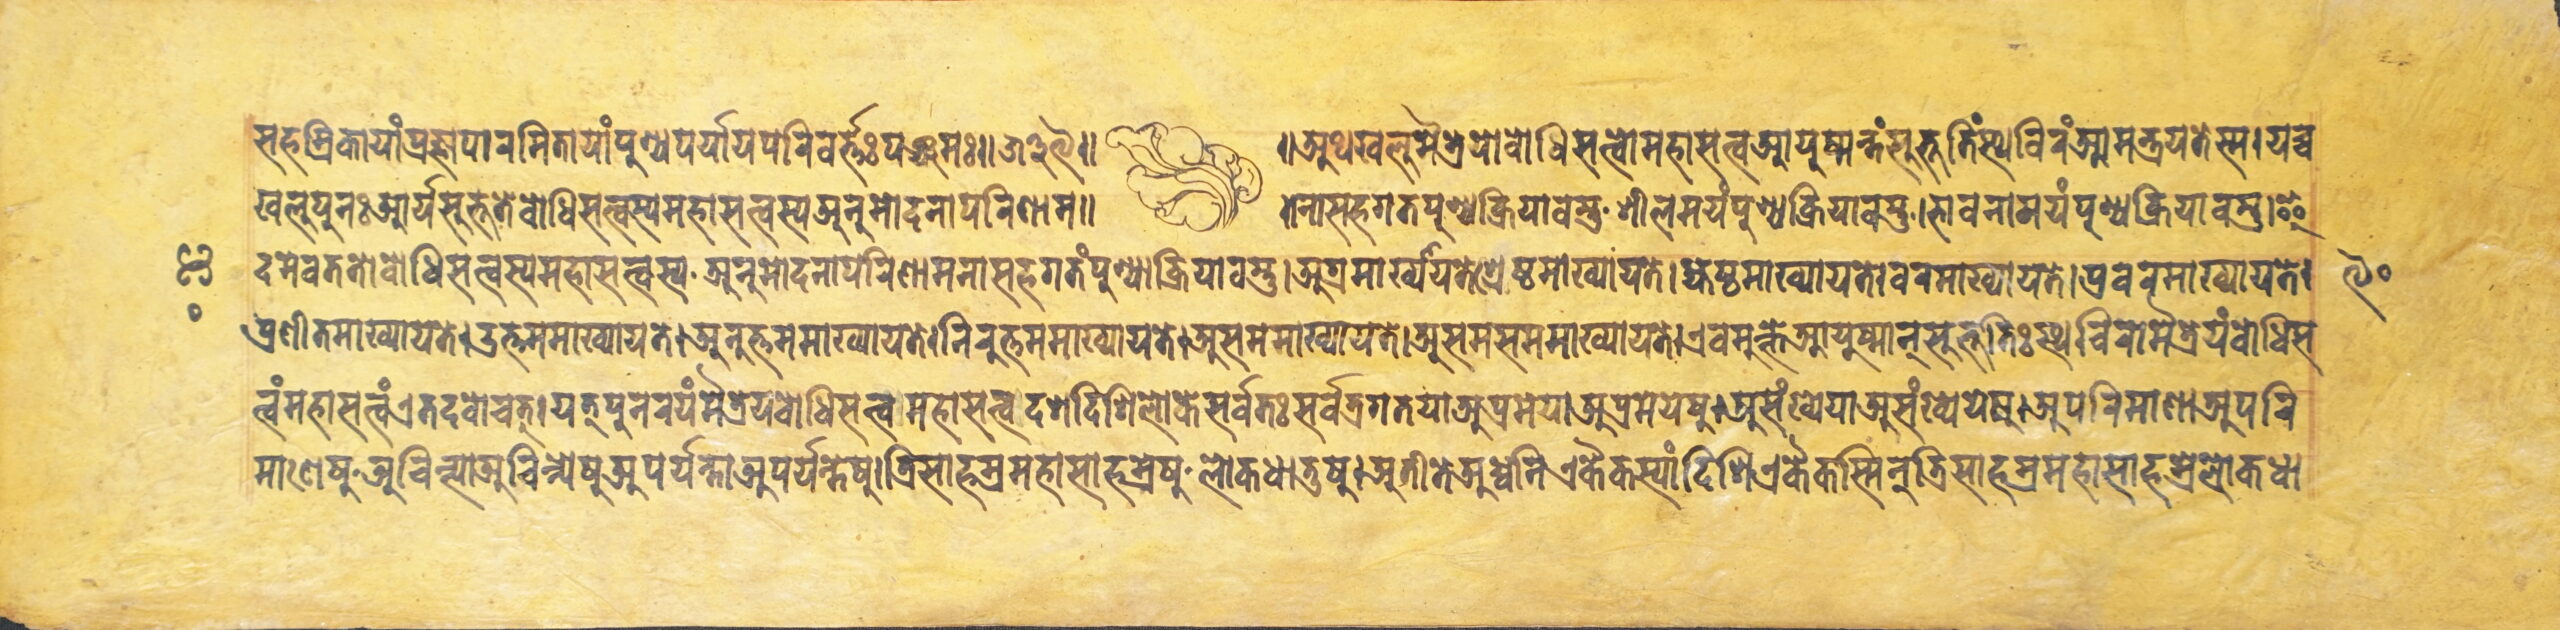 सहस्रिकायां प्रज्ञापारमितायां पुण्यपर्यायपरिवर्त्तः पञ्चमः॥ ॥ ॥ अथ खलु मैत्रेयो बोधिसत्त्वो महासत्त्व आयुष्मन्तं सुभूतिं स्थविरं आमन्त्रयते स्म। यच्च
खलु पुनः आर्य सुभूते बोधिसत्त्वस्य महासत्त्वस्य अनुमोदनापरिणाम॥ ॥नासहगतपुण्यक्रियावस्तु· शीलमयं पुण्यक्रियावस्तु। भावनामयं पुण्यक्रियावस्तु। इ
दमेव ततो बोधिसत्त्वस्य महासत्त्वस्य· अनुमोदनापरिणामनासहगतं पुण्याक्रियावस्तु। अग्रमाख्यायते श्रेष्ठमाख्यायते। ज्येष्ठमाख्यायते। वरमाख्यायते। प्रवरमाख्यायते।
प्रणीतमाख्यायते। उत्तममाख्यायते। अनुत्तममाख्यायते। निरुत्तममाख्यायते। असममाख्यायते। असमसममाख्यायते। एवमुक्ते आयुष्मान् सुभूतिः स्थविरो मैत्रेयं बोधिस
त्त्वं महासत्त्वं एतदवोचत्। यत् पुनरयं मैत्रेय बोधिसत्त्व महासत्त्व दशदिशि लोके सर्वतः सर्वत्रगतया अप्रमेया अप्रमेयेषु। असंख्येया असंख्येयेषु। अपरिमाणा अपरि
माणेषु· अचिन्त्या अचिन्त्येषु अपर्यन्ता अपर्यन्तेषु। त्रिसाहस्रमहासाहस्रेषु· लोकधातुषु। अतीते अध्वनि एकैकस्यां दिशि एकैकस्मिन् त्रिसाहस्रमहासाहस्रे लोकधा